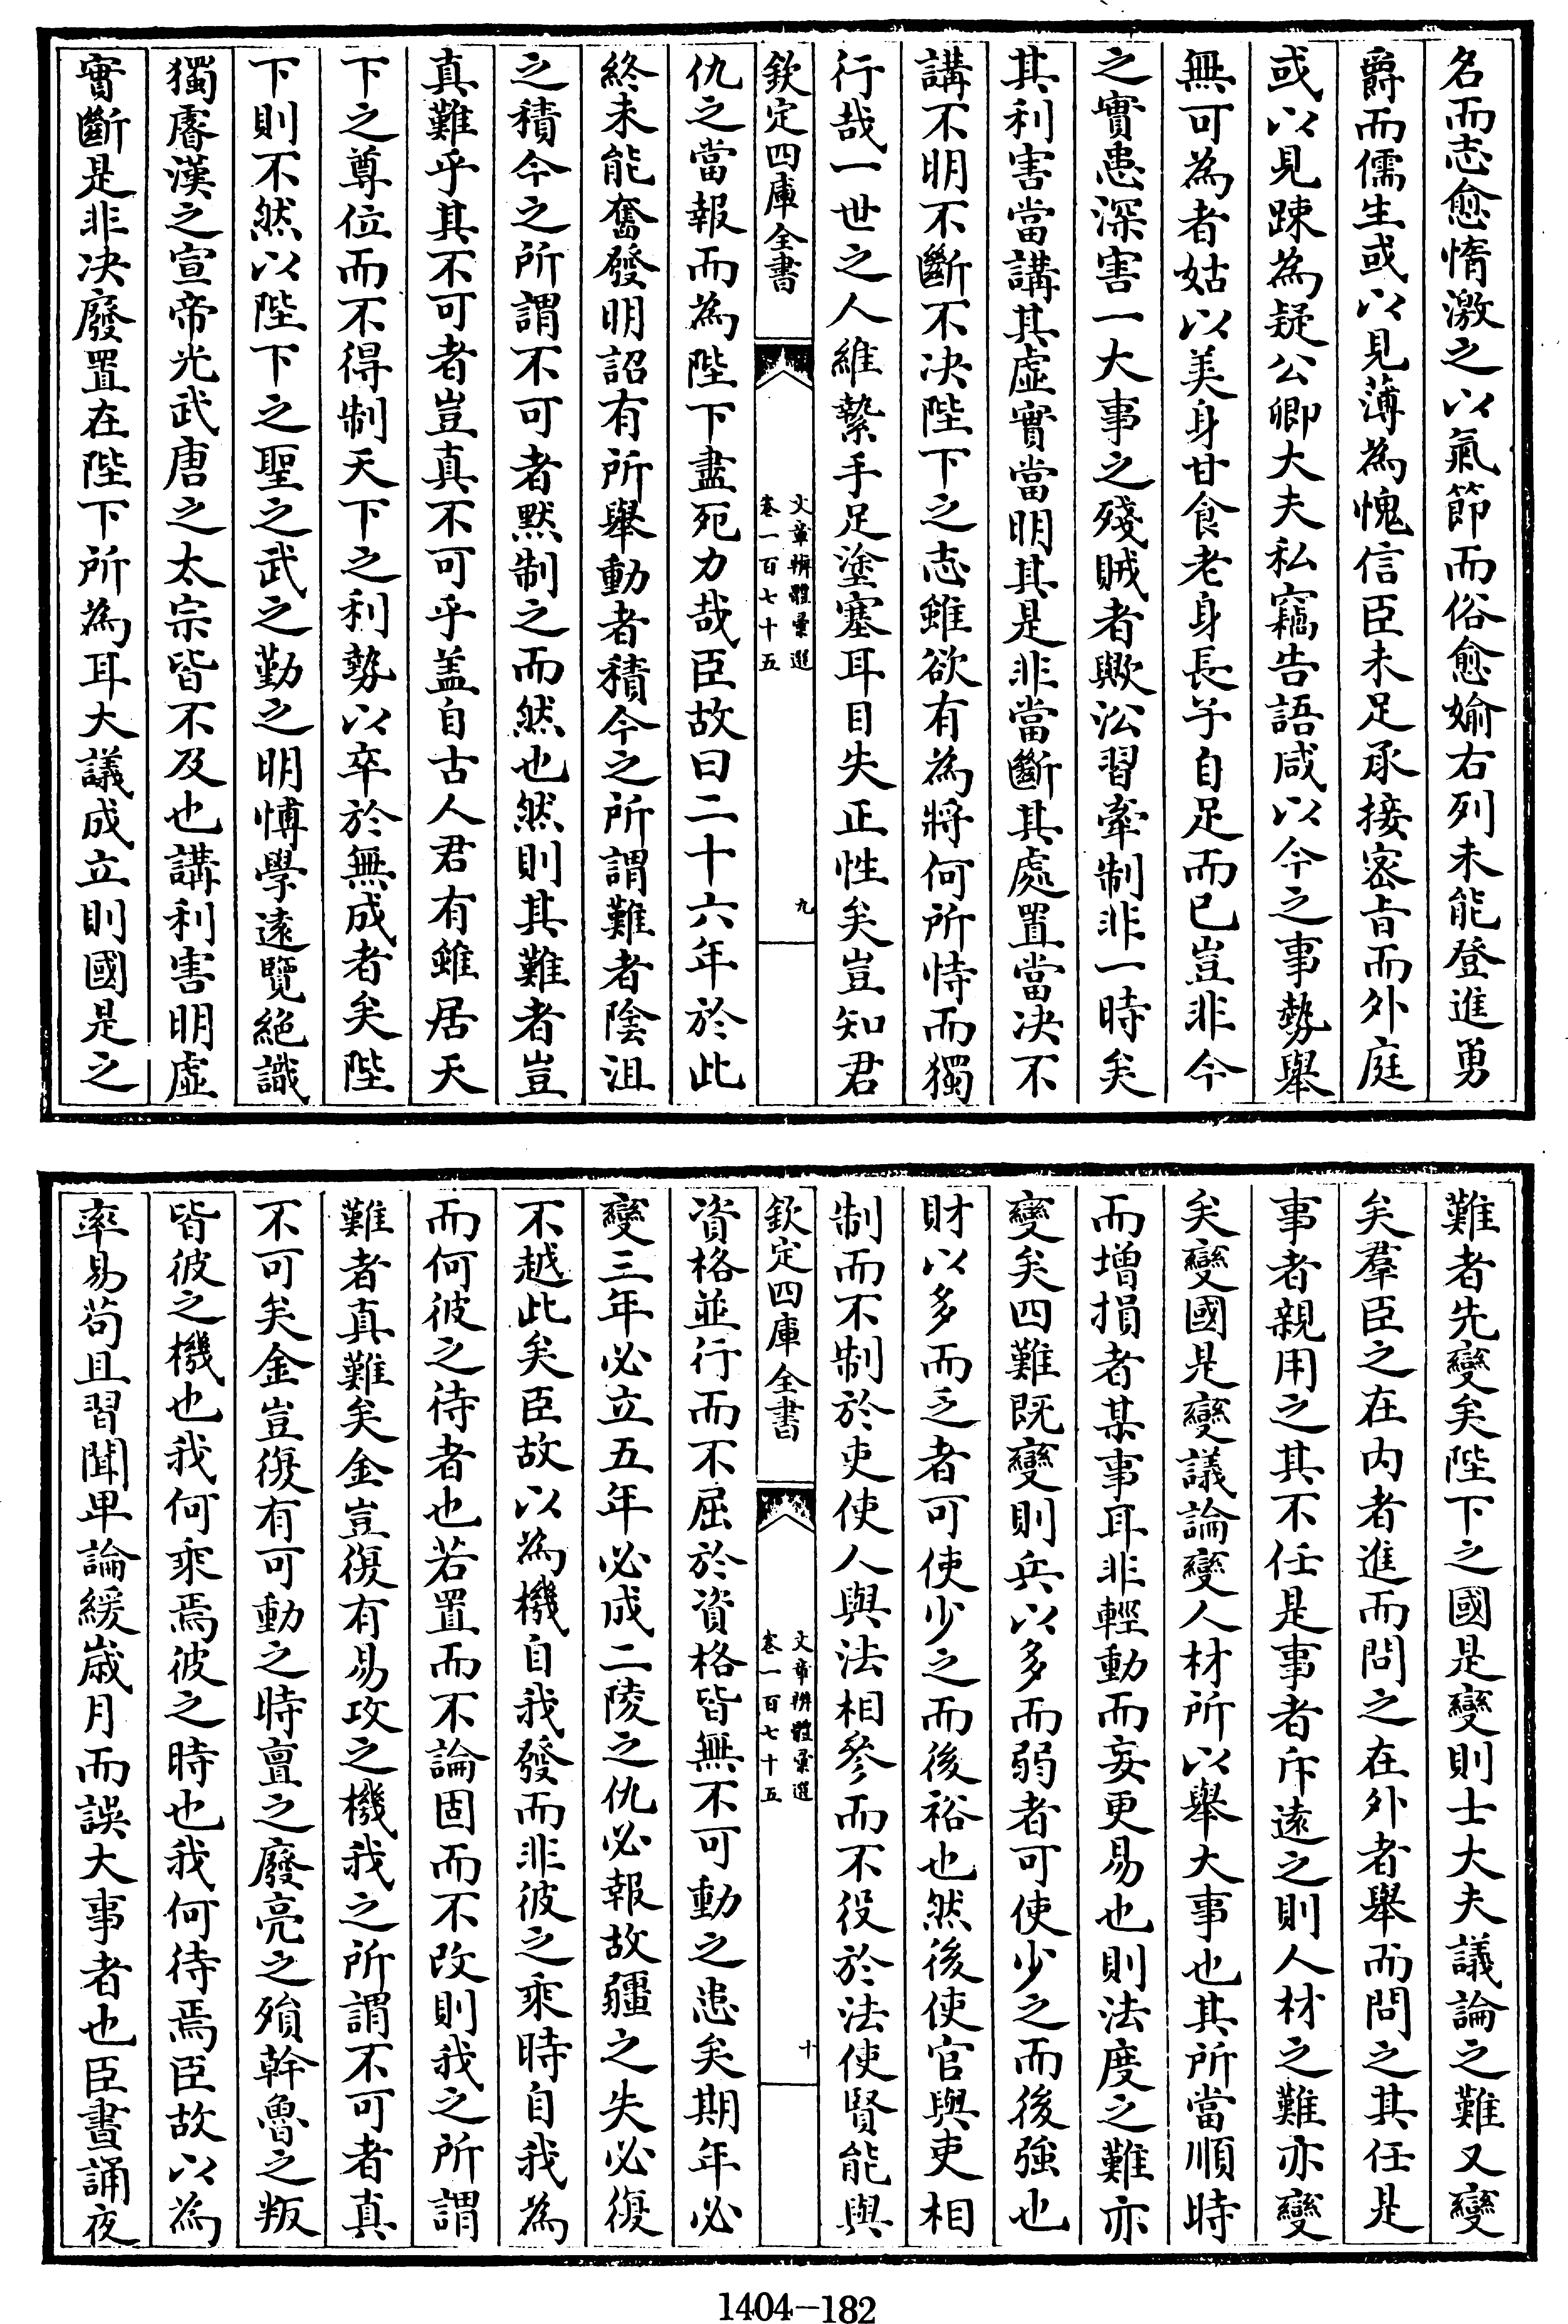 名而志愈惰激之以氣節而俗愈媮右列未能登進勇
爵而儒生或以見薄為愧信臣未足承接密旨而外庭
或以見踈為疑公卿大夫私竊告語咸以今之事勢舉
無可為者姑以美身甘食老身長子自足而已豈非今
之實患深害一大事之殘賊者歟㳂習牽制非一時矣
其利害當講其虛實當明其是非當斷其處置當决不
講不明不斷不决陛下之志雖欲有為將何所恃而獨
行哉一世之人維縶手足塗塞耳目失正性矣豈知君
欽定四庫全書
文章辨體彙選
卷一百七十五
九
仇之當報而為陛下盡死力哉臣故曰二十六年於此
終未能奮發明詔有所舉動者積今之所謂難者陰沮
之積今之所謂不可者默制之而然也然則其難者豈
真難乎其不可者豈真不可乎盖自古人君有雖居天
下之尊位而不得制天下之利勢以卒於無成者矣陛
下則不然以陛下之聖之武之勤之明博學遠覽絶識
獨睿漢之宣帝光武唐之太宗皆不及也講利害明虛
實斷是非决廢置在陛下所為耳大議成立則國是之
難者先變矣陛下之國是變則士大夫議論之難又變
矣羣臣之在内者進而問之在外者舉而問之其任是
事者親用之其不任是事者斥遠之則人材之難亦變
矣變國是變議論變人材所以舉大事也其所當順時
而增損者某事耳非輕動而妄更易也則法度之難亦
變矣四難既變則兵以多而弱者可使少之而後強也
財以多而乏者可使少之而後裕也然後使官與吏相
制而不制於吏使人與法相參而不役於法使賢能與
欽定四庫全書
文章辨體彙選
卷一百七十五
十
資格並行而不屈於資格皆無不可動之患矣期年必
變三年必立五年必成二陵之仇必報故疆之失必復
不越此矣臣故以為機自我發而非彼之乘時自我為
而何彼之待者也若置而不論固而不改則我之所謂
難者真難矣金豈復有易攻之機我之所謂不可者真
不可矣金豈復有可動之時亶之廢亮之殞幹魯之叛
皆彼之機也我何乘焉彼之時也我何待焉臣故以為
率易苟且習聞卑論緩歲月而誤大事者也臣晝誦夜
1404-182